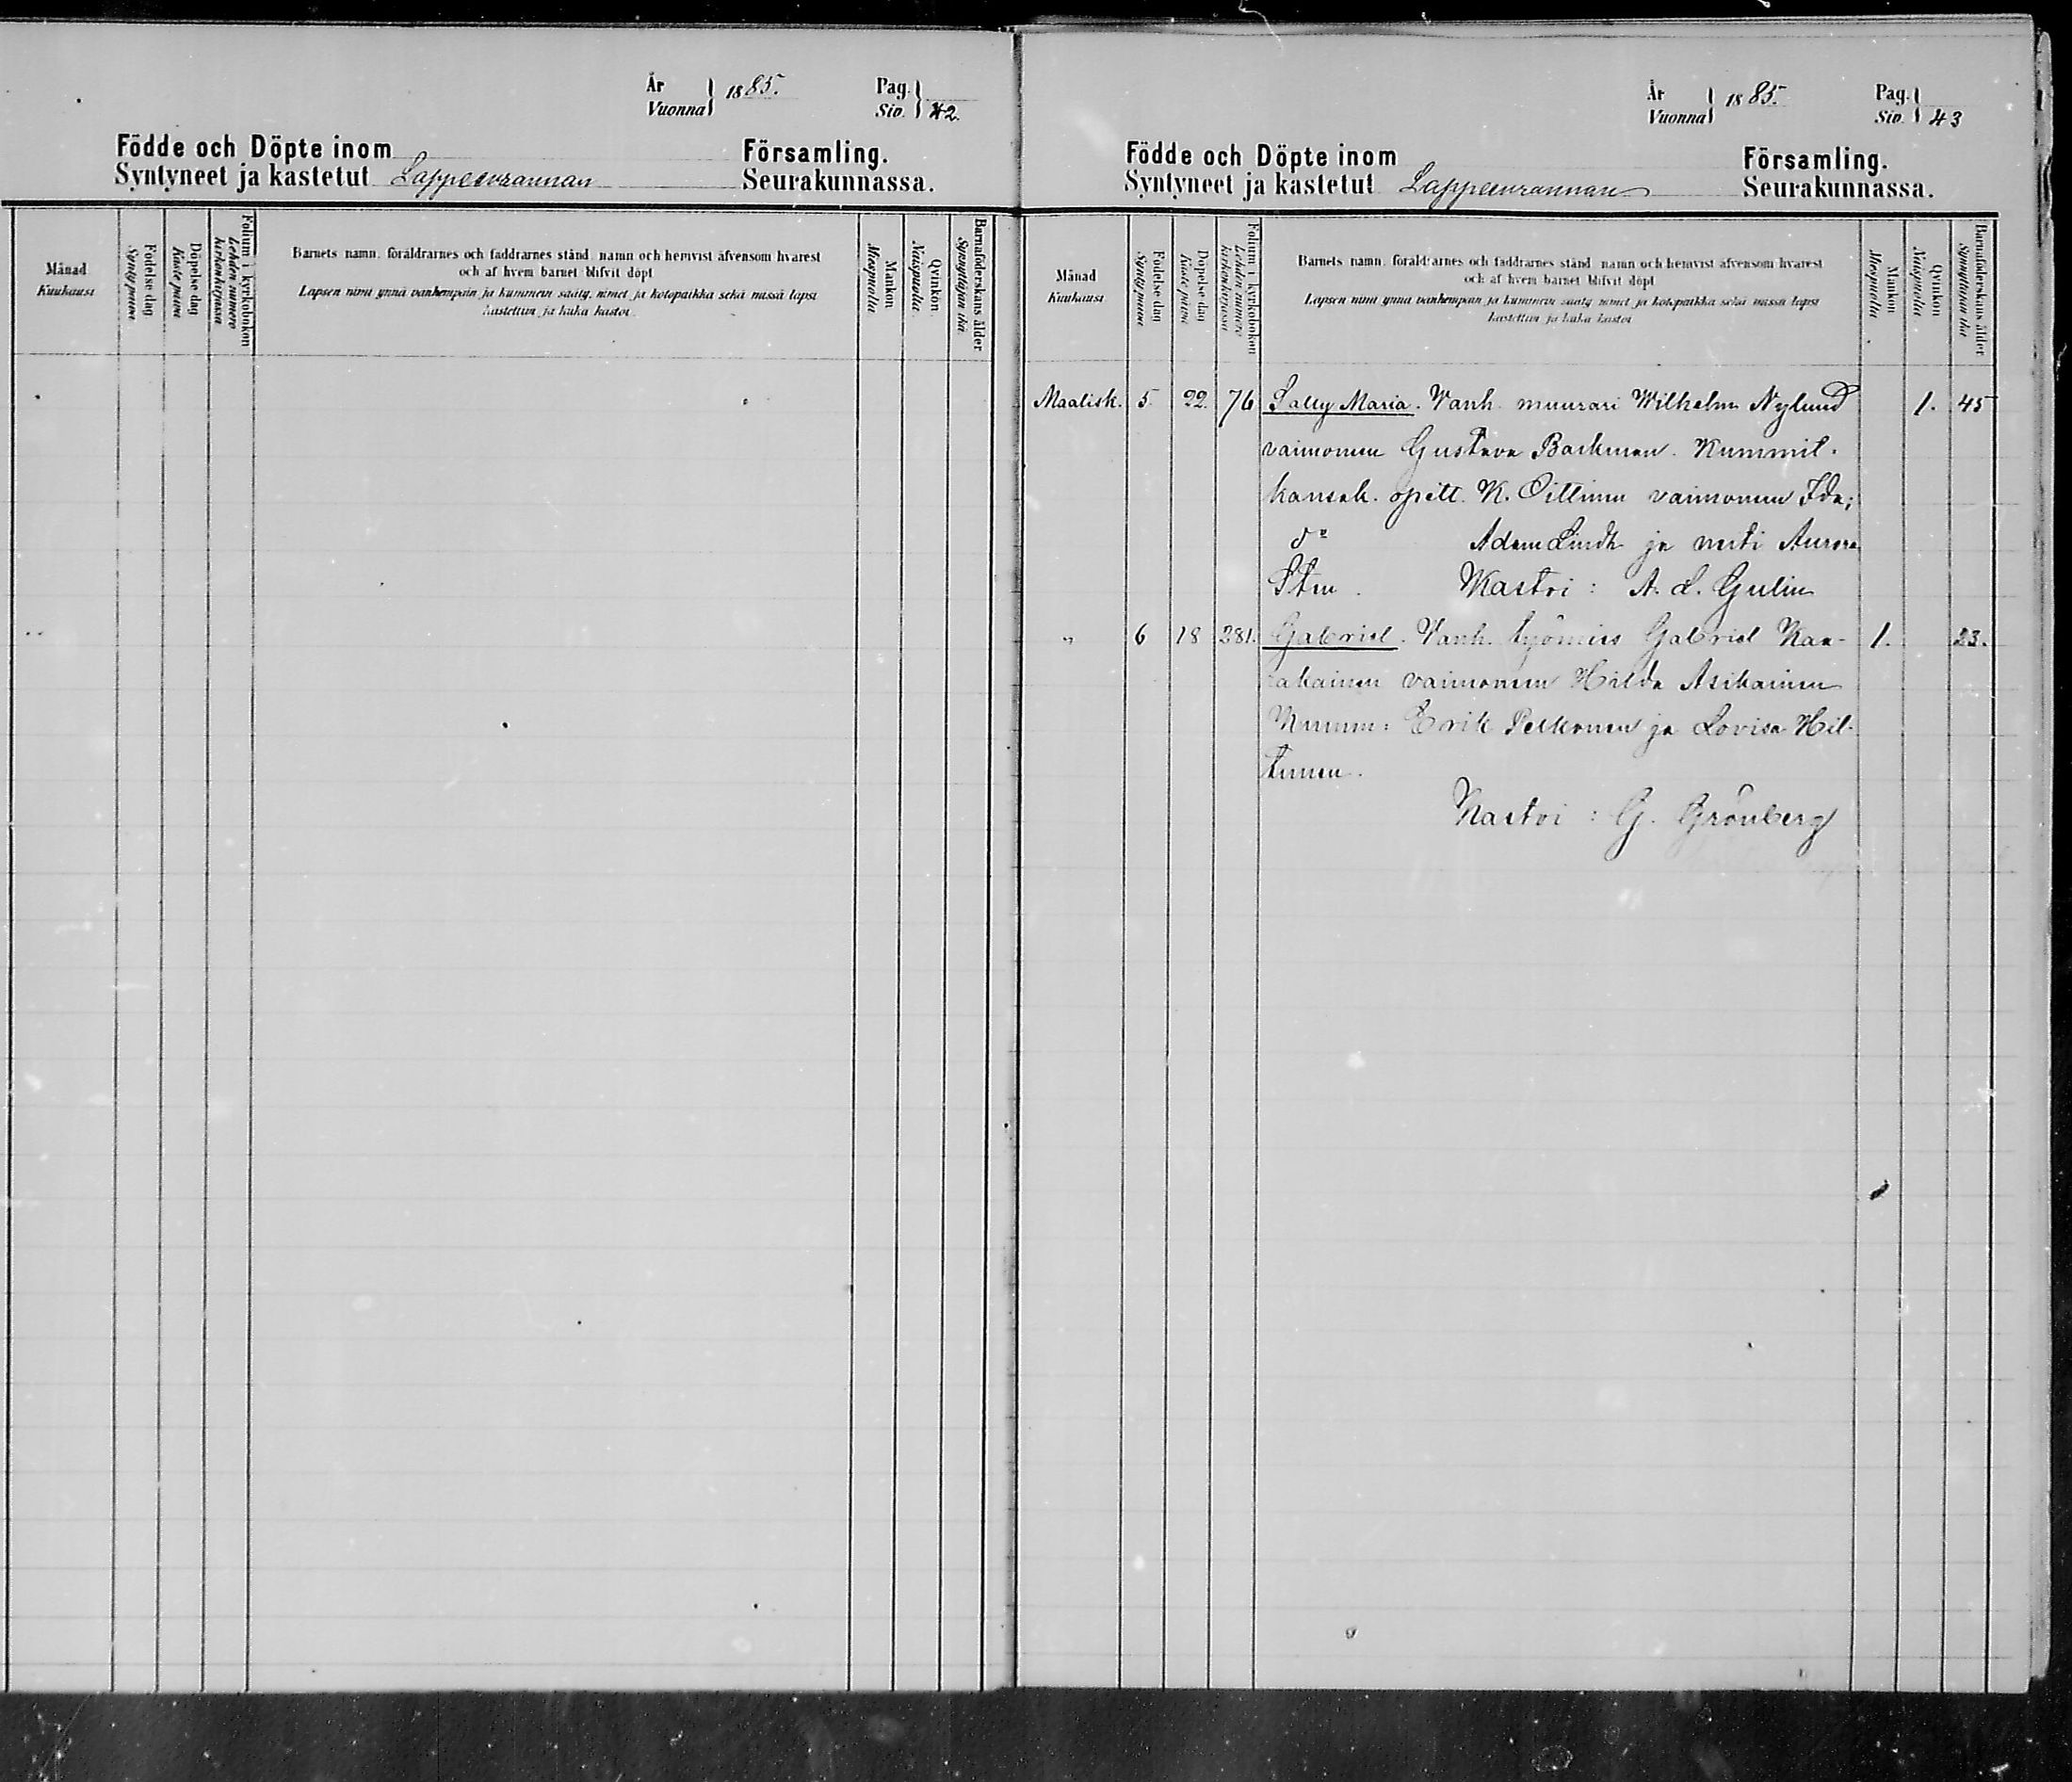 År
Vuonna 1885.
Pag.
Siv. 42.
Födde och Döpte inom Församling.
Syntyneet ja kastetut Lappeenrannan Seurakunnassa.
Månad
Kuukausi
Födelse dag
Synty päivä
Döpelse dag
Kaste päivä
Folium i kyrkoboken
Lehden numero
kirkonkirjassa
Barnets namn, föräldrarnes och faddrarnes stånd, namn och hemvist äfvensom hvarest
och af hvem barnet blifvit döpt
Lapsen nimi ynnä vanhempain ja kummein sääty, nimet ja kotopaikka sekä missä lapsi
kastettiin ja kuka kastoi
Mankön
Miespuolia
Qvinkön
Naispuolia
Barnaföderskans ålder
Synnyttäjän ikä
År
Vuonna 1885.
Pag.
Siv. 43
Födde och Döpte inom Församling.
Syntyneet ja kastetut Lappeenrannan Seurakunnassa.
Månad
Kuukausi
Födelse dag
Synty päivä
Döpelse dag
Kaste päivä
Folium i kyrkoboken
Lehden numero
kirkonkirjassa
Barnets namn, föräldrarnes och faddrarnes stånd, namn och hemvist äfvensom hvarest
och af hvem barnet blifvit döpt
Lapsen nimi ynnä vanhempain ja kummein sääty, nimet ja kotopaikka sekä missä lapsi
kastettiin ja kuka kastoi
Mankön
Miespuolia
Qvinkön
Naispuolia
Barnaföderskans ålder
Synnyttäjän ikä
Maalisk. 5. 22. 76 Sally Maria. Vanh. muurari Wilhelm Nylund 1. 45
vaimoneen Gustava Backman. Kummit.
kansak. opett. K. Oittinen vaimoneen Ida;
do Adam Lindh ja neiti Aurora
Sten. Kastoi: A. L. Gulin
" 6 18 281. Gabriel. Vanh. työmies Gabriel Kar- 1. 23.
rakainen vaimoneen Hilda Asikainen
Kumm: Erik Pelkonen ja Lovisa Hil-
tunen.
Kastoi: G. Grönberg